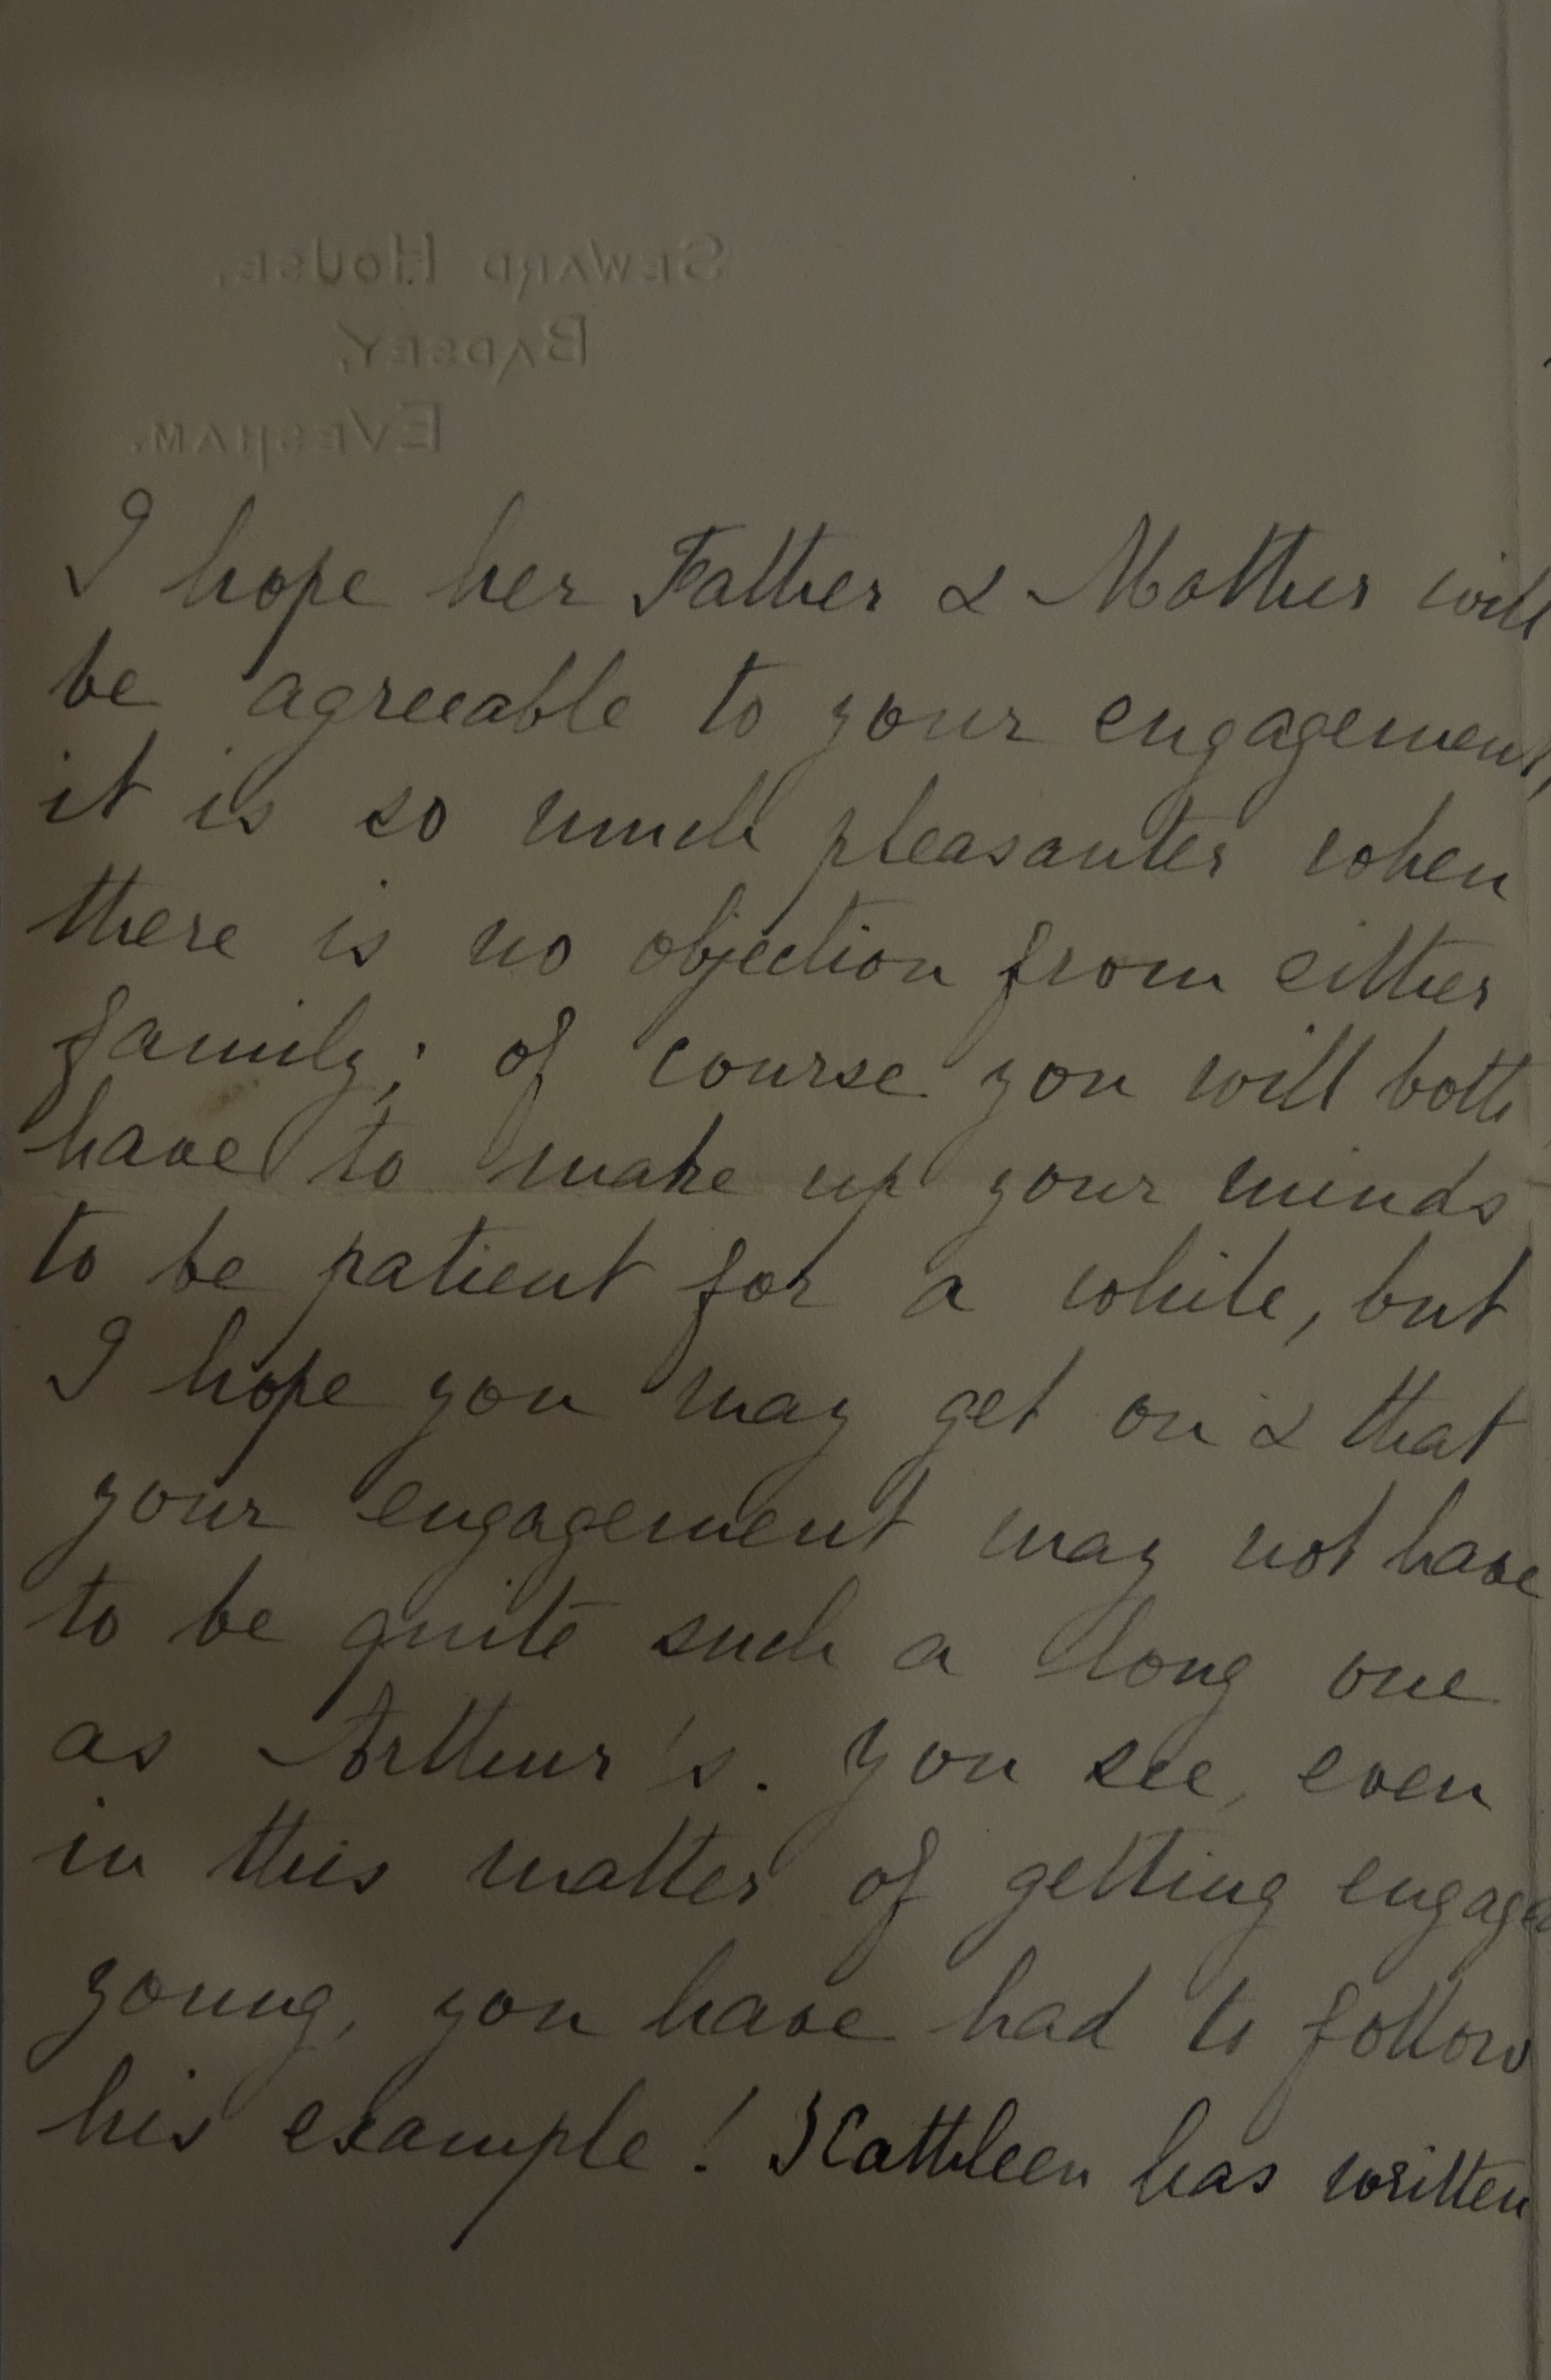 Seward House,
Badsey,
Evesham.
I hope her Father & Mother will
be agreeable to your engagement,
it is so much pleasanter when
there is no objection from either
family; of course you will both
have to make up your minds
to be patient for a while, but
I hope you may get on & that
your engagement may not have
to be quite such a long one
as Arthur's. You see, even
in this matter of getting engaged
young, you have had to follow
his example! Kathleen has written